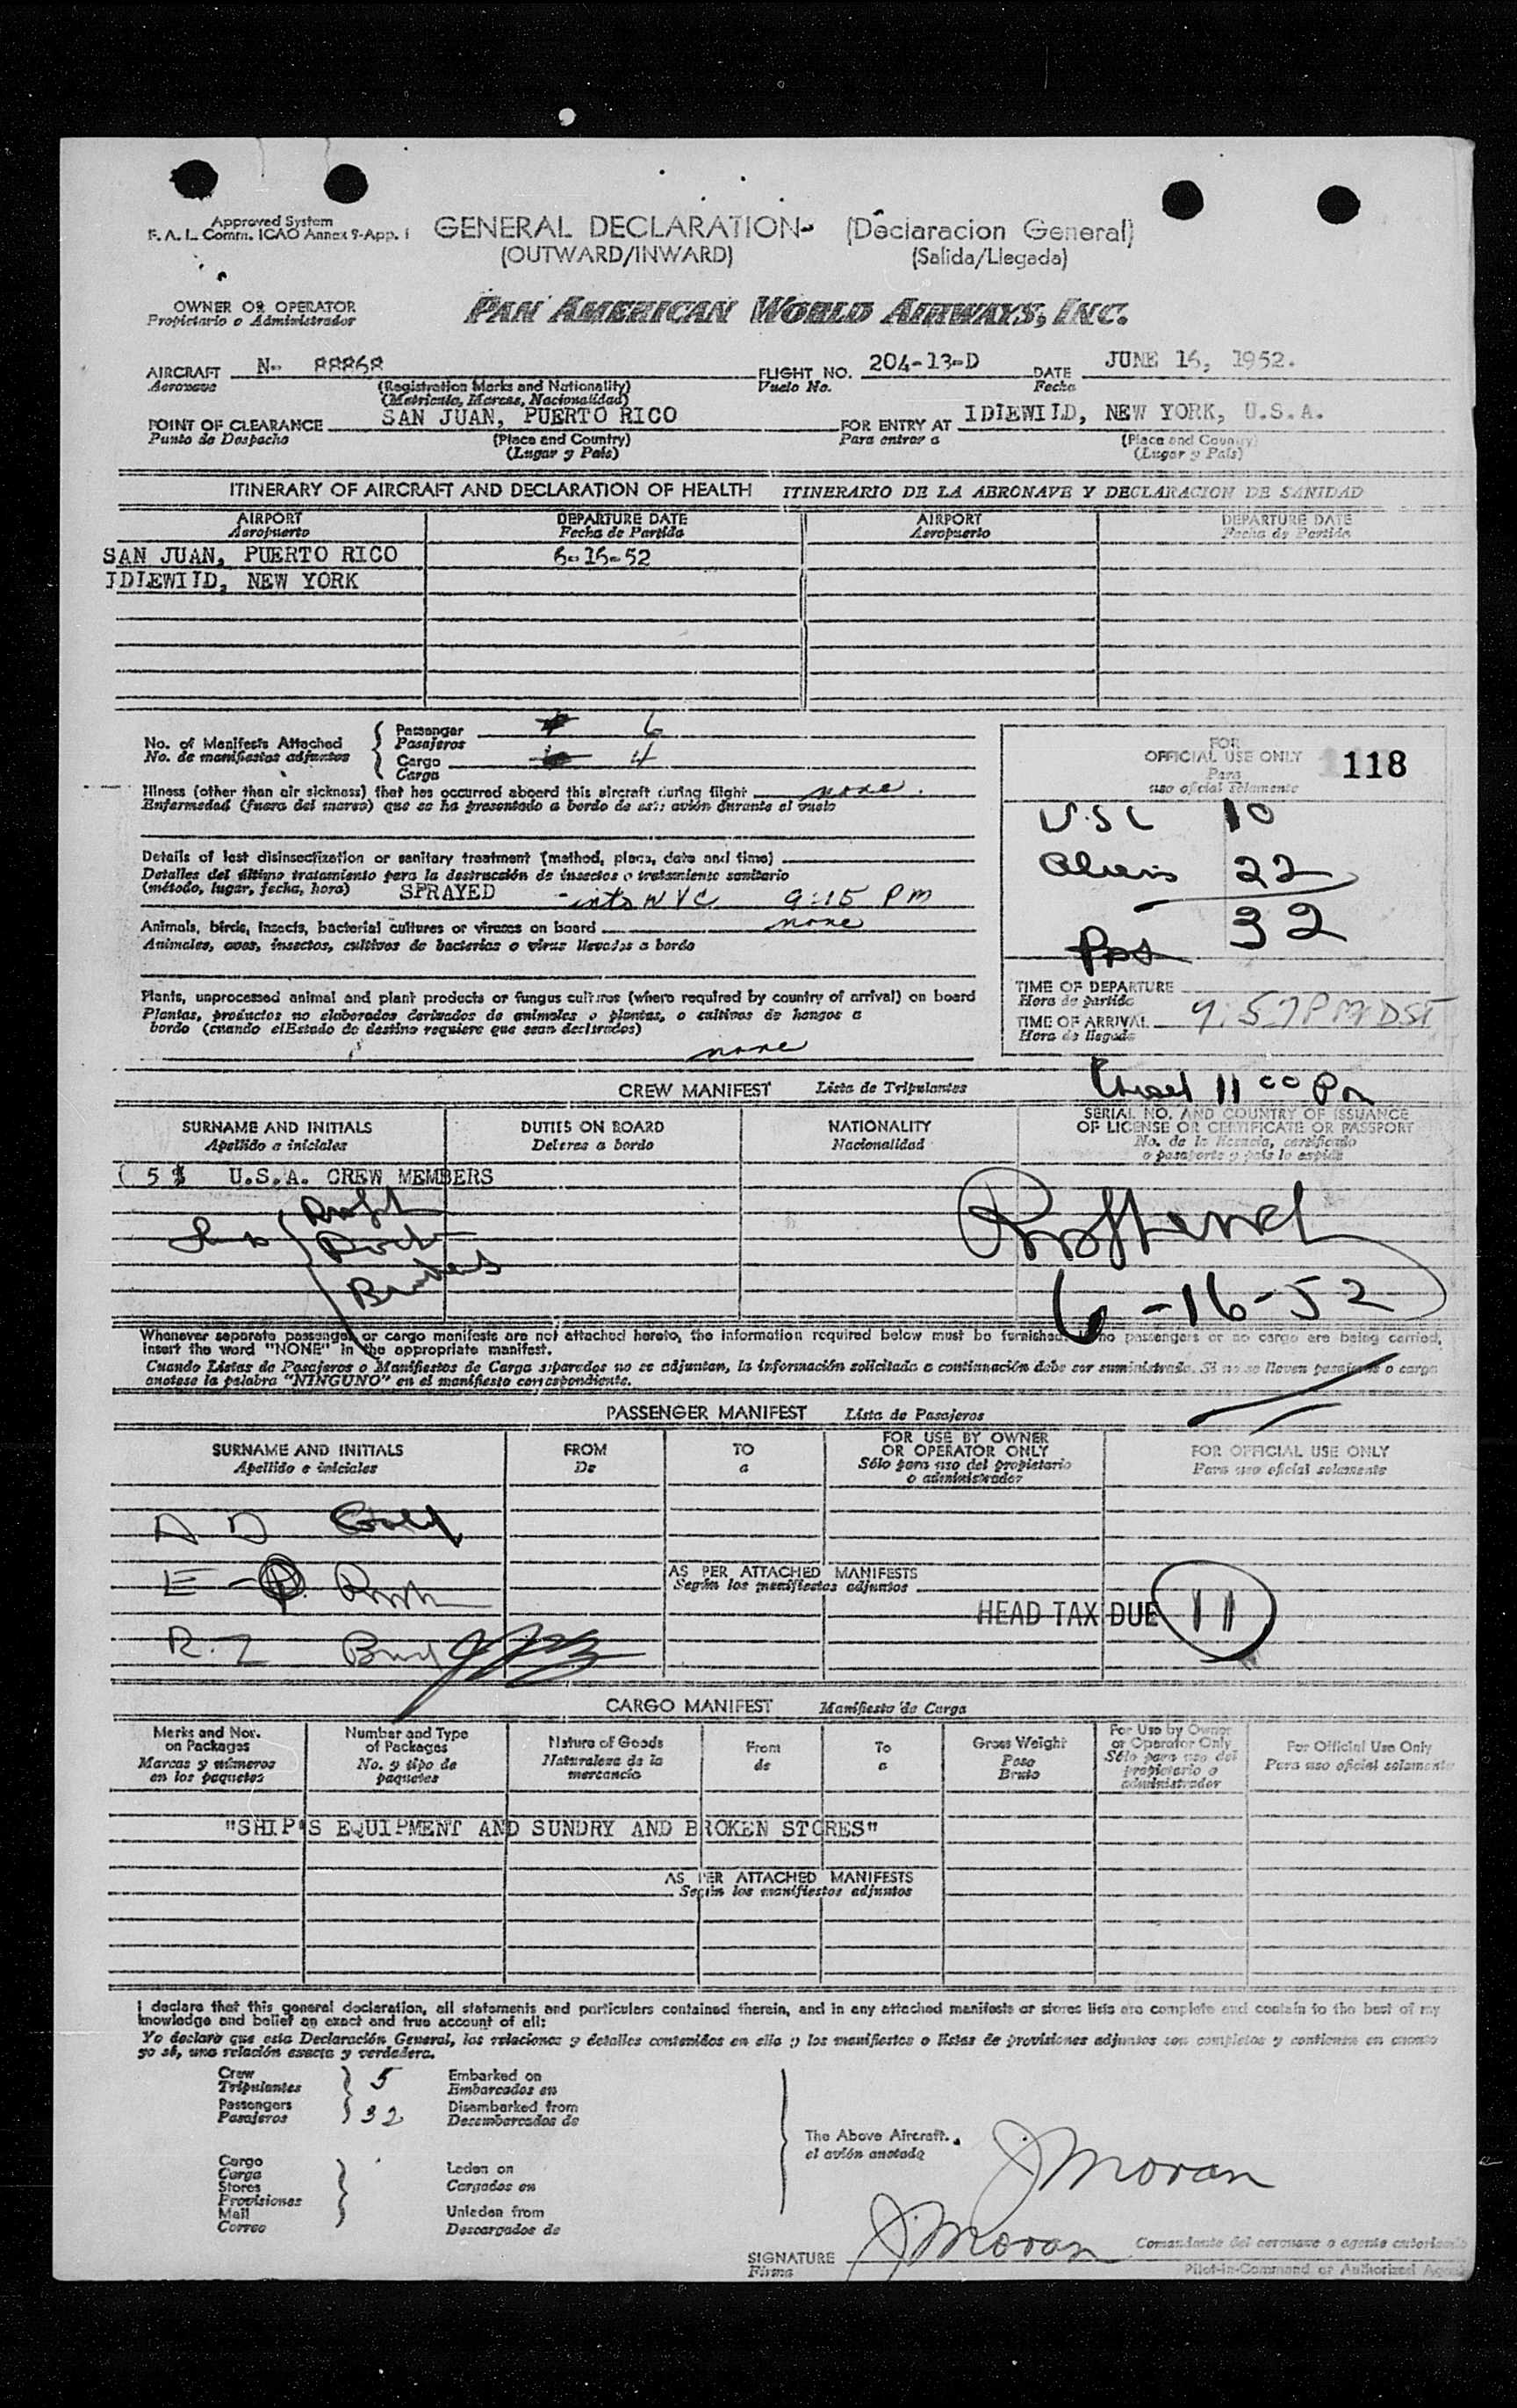 Approved System
F. A. L. Comm. ICAO Annex 9-App. 1
GENERAL DECLARATION- (Declaracion General)
(OUTWARD/INWARD) (Salida/Llegada)
OWNER OR OPERATOR
Propietario o Administrador
PAN AMERICAN WORLD AIRWAYS, INC.
AIRCRAFT N- 88868 FLIGHT NO. 204-13-D DATE JUNE 16, 1952.
Aeronave (Registration Marks and Nationality) Vuelo No. Fecha
(Matricula, Marcas, Nacionalidad)
POINT OF CLEARANCE SAN JUAN, PUERTO RICO FOR ENTRY AT IDLEWILD, NEW YORK, U.S.A.
Punto de Despacho (Place and Country) Para entrar a (Place and Country)
(Lugar y País) (Lugar y País)
ITINERARY OF AIRCRAFT AND DECLARATION OF HEALTH ITINERARIO DE LA AERONAVE Y DECLARACION DE SANIDAD
AIRPORT DEPARTURE DATE AIRPORT DEPARTURE DATE
Aeropuerto Fecha de Partida Aeropuerto Fecha de Partida
SAN JUAN, PUERTO RICO 6-16-52
IDLEWILD, NEW YORK
No. of Manifests Attached
No. de manifiestos adjuntos
Passenger 6
Pasajeros
Cargo 4
Carga
Illness (other than air sickness) that has occurred aboard this aircraft during flight none.
Enfermedad (fuera del mareo) que se ha presentado a bordo de este avión durante el vuelo
Details of last disinsectization or sanitary treatment (method, place, date and time)
Detalles del último tratamiento para la destrucción de insectos o tratamiento sanitario
(método, lugar, fecha, hora) SPRAYED - into NYC 9:15 PM
Animals, birds, insects, bacterial cultures or viruses on board none
Animales, aves, insectos, cultivos de bacterias o virus llevados a bordo
Plants, unprocessed animal and plant products or fungus cultures (where required by country of arrival) on board
Plantas, productos no elaborados derivados de animales o plantas, o cultivos de hongos a
bordo (cuando el Estado de destino requiere que sean declarados)
none
FOR
OFFICIAL USE ONLY 118
Para
uso oficial solamente
USC 10
Aliens 22
32
TIME OF DEPARTURE
Hora de partida
TIME OF ARRIVAL 9:57 PM DST
Hora de llegada
11 00 Pm
CREW MANIFEST Lista de Tripulantes
SURNAME AND INITIALS DUTIES ON BOARD NATIONALITY SERIAL NO. AND COUNTRY OF ISSUANCE
OF LICENSE OR CERTIFICATE OR PASSPORT
Apellido a iniciales Deberes a bordo Nacionalidad No. de la licencia, certificado
o pasaporte y país lo expide
( 5 ) U.S.A. CREW MEMBERS
6-16-52
Whenever separate passenger or cargo manifests are not attached hereto, the information required below must be furnished. If no passengers or no cargo are being carried,
insert the word "NONE" in the appropriate manifest.
Cuando Listas de Pasajeros o Manifiestos de Carga separados no se adjuntan, la información solicitada a continuación debe ser suministrada. Si no se llevan pasajeros o carga
anotese la palabra "NINGUNO" en el manifiesto correspondiente.
PASSENGER MANIFEST Lista de Pasajeros
SURNAME AND INITIALS FROM TO FOR USE BY OWNER
OR OPERATOR ONLY FOR OFFICIAL USE ONLY
Apellido e iniciales De a Sólo para uso del propietario
o administrador Para uso oficial solamente
AS PER ATTACHED MANIFESTS
Según los manifiestos adjuntos
HEAD TAX DUE 11
CARGO MANIFEST Manifiesto de Carga
Marks and Nos.
on Packages
Marcas y números
en los paquetes
Number and Type
of Packages
No. y tipo de
paquetes
Nature of Goods
Naturaleza de la
mercancia
From
de
To
a
Gross Weight
Peso
Bruto
For Use by Owner
or Operator Only
Sólo para uso del
propietario o
administrador
For Official Use Only
Para uso oficial solamente
"SHIP'S EQUIPMENT AND SUNDRY AND BROKEN STORES"
AS PER ATTACHED MANIFESTS
Según los manifiestos adjuntos
I declare that this general declaration, all statements and particulars contained therein, and in any attached manifests or stores lists are complete and contain to the best of my
knowledge and belief an exact and true account of all:
Yo declaro que esta Declaración General, las relaciones y detalles contenidos en ella y los manifiestos o listas de provisiones adjuntos son completos y contienen en cuanto
yo sé, una relación exacta y verdadera.
Crew 5 Embarked on
Tripulantes Embarcados en
Passengers 32 Disembarked from
Pasajeros Desembarcados de
Cargo
Carga Laden on
Stores Cargados en
Provisiones
Mail Unladen from
Correo Descargados de
The Above Aircraft.
el avión anotado
J Moran
J Moran
SIGNATURE
Firma
Comandante del aeronave o agente autorizado
Pilot-in-Command or Authorized Agent